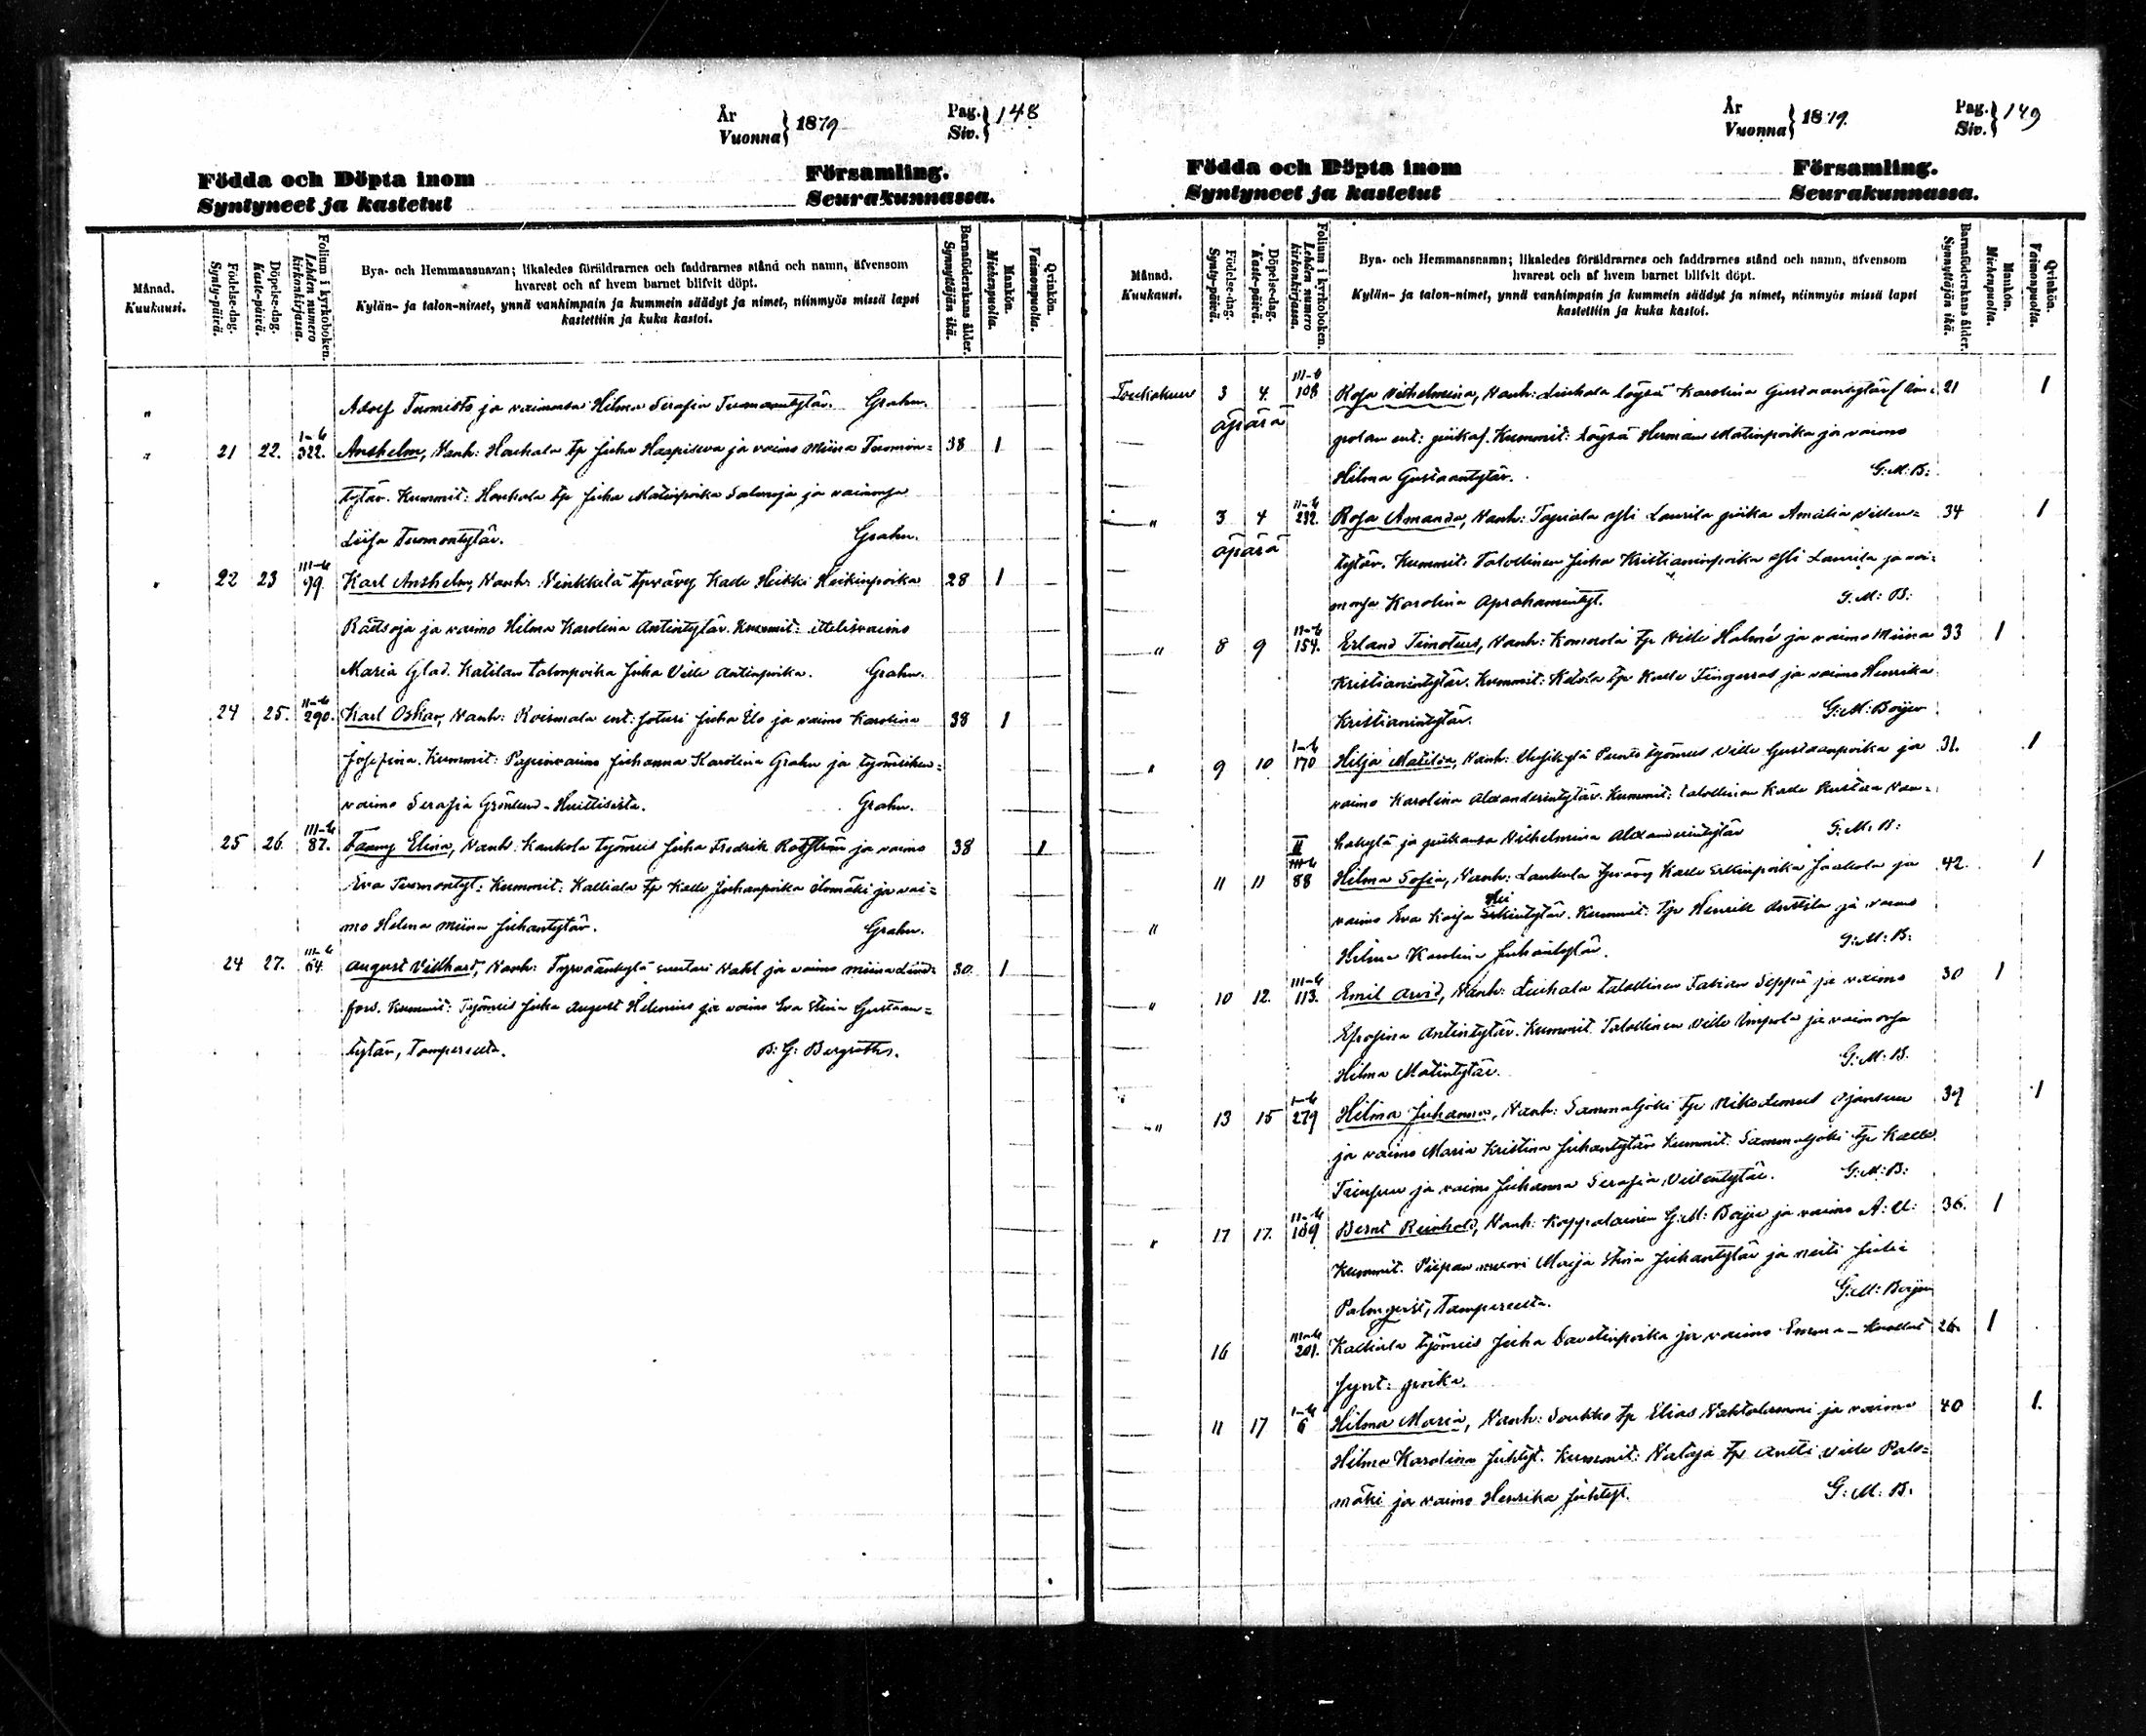 År
Vuonna } 1879
Pag.
Siv. } 148
Födda och Döpta inom Församling.
Syntyneet ja kastetut Seurakunnassa.
Månad.
Kuukausi.
Födelse-dag.
Synty-päivä.
Döpelse-dag.
Kaste-päivä.
Folium i kyrkoboken.
Lehden numero kirkonkirjassa.
Bya- och Hemmansnamn; likaledes föräldrarnes och faddrarnes stånd och namn, äfvensom
hvarest och af hvem barnet blifvit döpt.
Kylän- ja talon-nimet, ynnä vanhimpain ja kummein säädyt ja nimet, niinmyös missä lapsi
kastettiin ja kuka kastoi.
Barnaföderskans ålder.
Synnyttäjän ikä.
Mankön.
Miehenpuolia.
Qvinkön.
Vaimonpuolia.
" Adolf Tuomisto ja vaimonsa Hilma Serafia Tuomaantytär. Grahn.
" 21 22. I-b 322. Anshelm, Vanh: Houhala tp Juha Haapiseva ja vaimo Miina Tuomon= 38 1
tytär. Kummit: Houhala tp Juha Matinpoika Salmoja ja vaimonsa
Liisa Tuomontytär. Grahn.
" 22 23 III-b 99. Karl Anshelm, Vanh: Vinkkilä tpvävy Kalle Heikki Heikinpoika 28 1
Rättsoja ja vaimo Hilma Karolina Antintytär. Kummit: ittelisvaimo
Maria Glad. Katilan talonpoika Juha Ville Antinpoika. Grahn.
24 25. II-b 290. Karl Oskar, Vanh: Roismala ent: soturi Juha Elo ja vaimo Karolina 38 1
Josefina. Kummit: Papinvaimo Johanna Karolina Grahn ja työmiehen=
vaimo Serafia Grönlund - Huittisista. Grahn.
25 26. III-b 87. Fanny Elina, Vanh: Kaukola työmies Juha Fredrik ja vaimo 38 1
Eva Tuomontyt: Kummit: Kalliala tp Kalle Juhanpoika Ilomäki ja vai=
mo Helena Miina Juhantytär. Grahn.
24 27. III-b 64. August Villhard, Vanh: Tyrväänkylä suutari Vahl ja vaimo Miina Lind= 30. 1
fors. Kummit: Työmies Juha August Helenius ja vaimo Eva Stina Gustaan=
tytär, Tampereelta. B: G: Bergroth.
År
Vuonna } 1879.
Pag.
Siv. } 149
Födda och Döpta inom Församling.
Syntyneet ja kastetut Seurakunnassa.
Månad.
Kuukausi.
Födelse-dag.
Synty-päivä.
Döpelse-dag.
Kaste-päivä.
Folium i kyrkoboken.
Lehden numero kirkonkirjassa.
Bya- och Hemmansnamn; likaledes föräldrarnes och faddrarnes stånd och namn, äfvensom
hvarest och af hvem barnet blifvit döpt.
Kylän- ja talon-nimet, ynnä vanhimpain ja kummein säädyt ja nimet, niinmyös missä lapsi
kastettiin ja kuka kastoi.
Barnaföderskans ålder.
Synnyttäjän ikä.
Mankön.
Miehenpuolia.
Qvinkön.
Vaimonpuolia.
Toukokuu 3 4. III-b 108 Rosa Vilhelmina, Vanh: Liuhala löysä Karolina Gustaantytär (Um= 21 1
äpärä polan ent: piika). Kummit: Löysä Herman Matinpoika ja vaimo
Hilma Gustaantytär. G: M: B:
" 3 4 II-b 232. Rosa Amanda, Vanh: Tapiola Laurila piika Amalia Villen= 34 1
äpärä tytär. Kummit: Talollinen Juha Kristianinpoika Laurila ja vai=
monsa Karolina Aprahamintyt. G: M: B:
" 8 9 II-b 154. Erland Timoteus, Vanh: Komerola tp Ville Halmé ja vaimo Miina 33 1
Kristianintytär. Kummit: Ketola tp Kalle Tingerras ja vaimo Henrika
Kristianintytär. G: M: Boijer
" 9 10 I-b 170 Hilja Matilda, Vanh: Uusikylä työmies Ville Gustaanpoika ja 31. 1
vaimo Karolina Alexanderintytär. Kummit: talollinen Kalle Kustaa Van=
hakylä ja piikansa Vilhelmina Alexanderintytär G: M: B:
11 11 II III-b 88 Hilma Sofia, Vanh: Laukula tpvävy Kalle Erkinpoika Jaakola ja 42. 1
" vaimo Eva Kaisa Erkintytär. Kummit: tp Henrik Anttila ja vaimo
Hilma Karolina Juhantytär. G: M: B:
" 10 12. III-b 113. Emil Arvid, Vanh: Liuhala talollinen Fabian Seppä ja vaimo 30 1
Efrosina Antintytär. Kummit: Talollinen Ville Umpola ja vaimonsa
Hilma Matintytär. G: M: B.
" 13 15 I-b 279 Hilma Juhanna, Vanh: Sammaljoki tp Nikodemus Ojansuu 39 1
ja vaimo Maria Kristina Juhantytär Kummit: Sammaljoki tp Kalle
ja vaimo Juhanna Serafia Villentytär. G: M: B:
" 17 17. II-b 189 Bernt Reinhold, Vanh: Kappalainen G: M: Boijer ja vaimo A: U: 36. 1
Kummit: Piipan muori Maija Stina Juhantytär ja neiti Julia
Palmqvist, Tampereelta. G: M: Boijer
16 III-b 201. Kalliala työmies Juha Daavetinpoika ja vaimo Emma - kuollut 26. 1
synt: poika.
11 17 I-b 6 Hilma Maria, Vanh: Soukko tp Elias Vahtolammi ja vaimo 40 1.
Hilma Karolina Juhtyt. Kummit: Nataja tp Antti Ville Palo=
mäki ja vaimo Henrika Juhtyt. G: M: B.